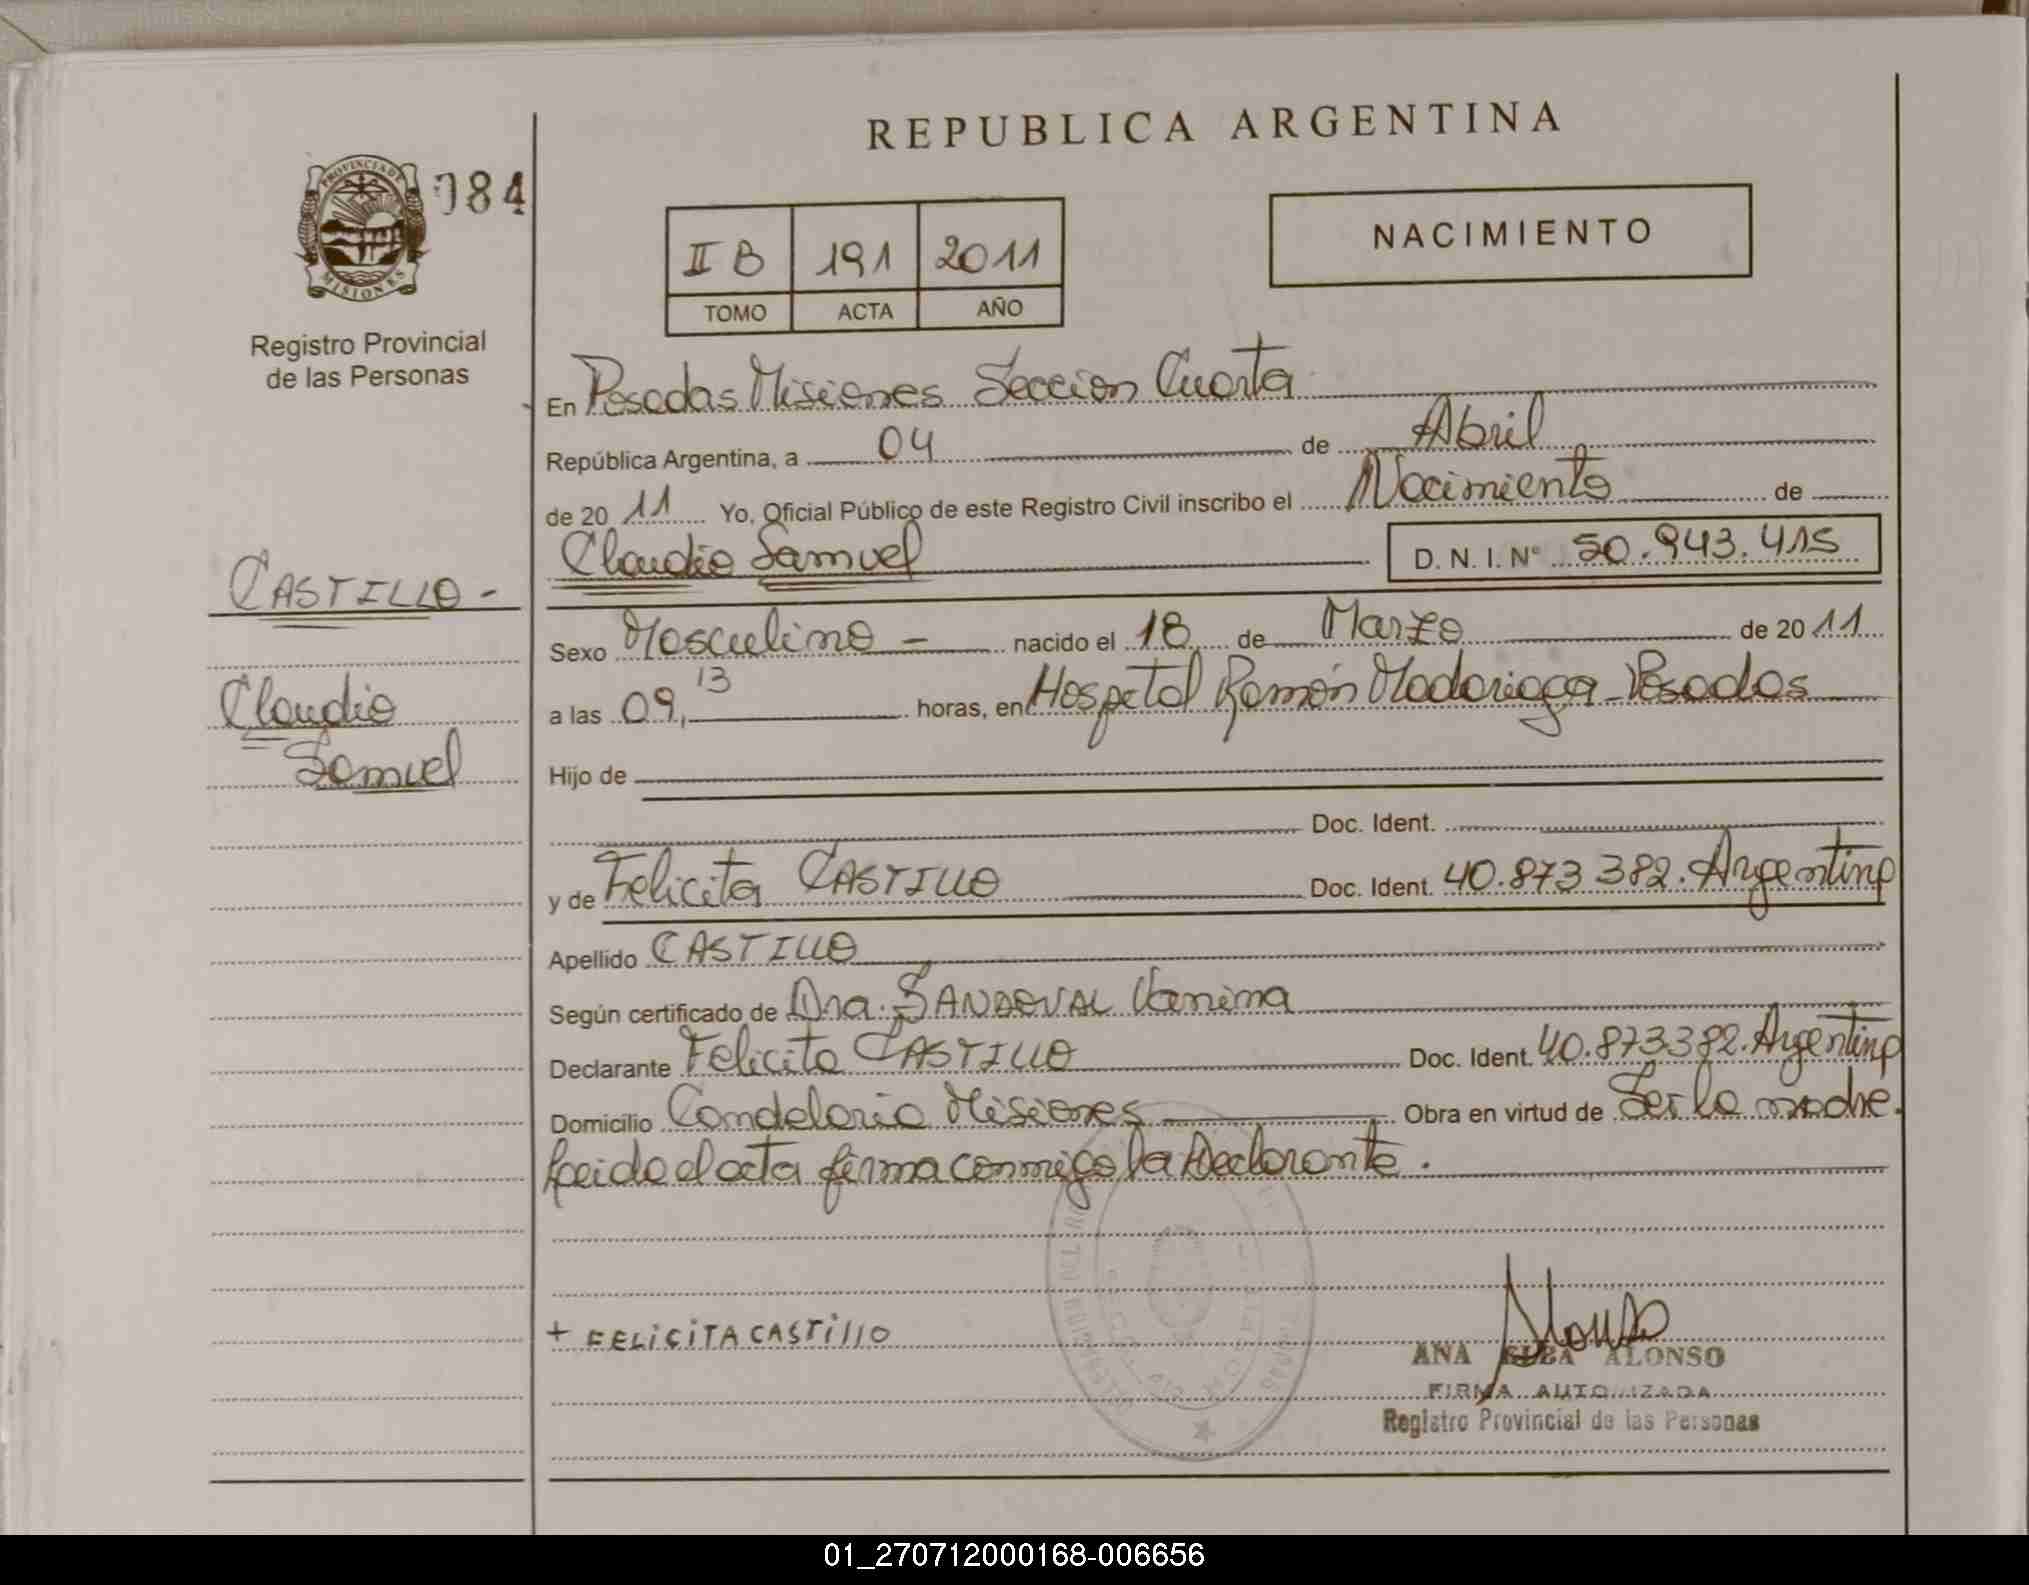 REPUBLICA ARGENTINA
PROVINCIA DE
MISIONES
084
Registro Provincial
de las Personas
II B 191 2011
TOMO ACTA AÑO
NACIMIENTO
En Posadas Misiones Seccion Cuarta
República Argentina, a 04 de Abril
de 20 11 Yo, Oficial Público de este Registro Civil inscribo el Nacimiento de
Claudio Samuel D. N. I. Nº 50.943.415
CASTILLO -
Claudio
Samuel
Sexo Masculino - nacido el 18 de Marzo de 20 11
a las 09,13 horas, en Hospital Ramón Madariaga - Posadas
Hijo de
Doc. Ident.
y de Felicita CASTILLO Doc. Ident. 40.873.382. Argentina
Apellido CASTILLO
Según certificado de Dra. SANDOVAL Vanina
Declarante Felicita CASTILLO Doc. Ident. 40.873.382. Argentina
Domicilio Candelaria Misiones Obra en virtud de Ser la madre.
Leida el acta firma conmigo la Declarante.
+ FELICITA CASTILLO
Alonso
ANA ELBA ALONSO
FIRMA AUTORIZADA
Registro Provincial de las Personas
01_270712000168-006656